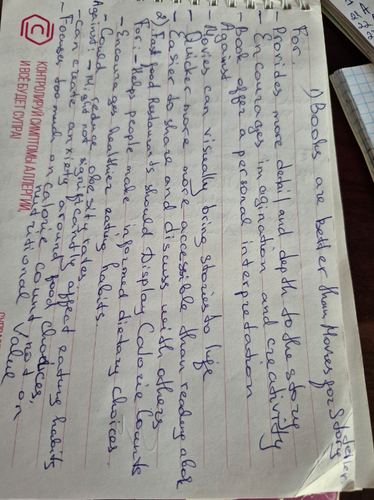 1) Books are better than Movies for Story teller
For:
- Provides more detail and depth to the story
- Encourages imagination and creativity
- Book offer personal interpretation
Against
- Movies can visually bring stories to life
- Quicker more more accessible than reading a book
- Easier to share and discuss with others
2) Fast food Restaurants should Display Calorie Counts
For: - Helps people make informed dietary choices
- Encourages healthier eating habits.
- Could reduce obesity rates.
Against: - Might not significantly affect eating habits
- can create anxiety around food choices,
- Focuses too much on calorie count not on
nutritional value
КОНТРОЛИРУЙ СИМПТОМЫ АЛЛЕРГИИ,
И ВСЁ БУДЕТ СУПРА!